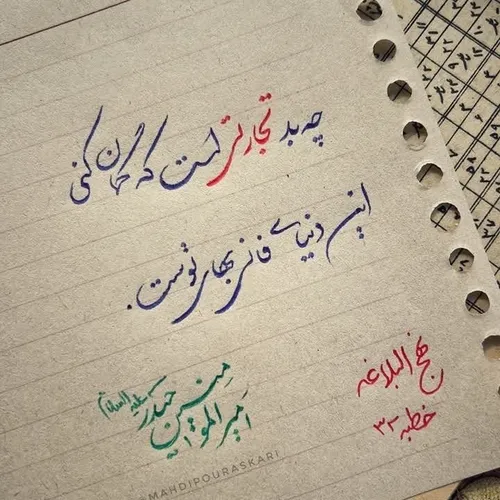 چه بد تجارتی است که گمان کنی
این دنیای فانی بهای توست.
نهج البلاغه
خطبه ۳۲
امیرالمؤمنین
حیدر علیه السلام
MAHDIPOURASKARI